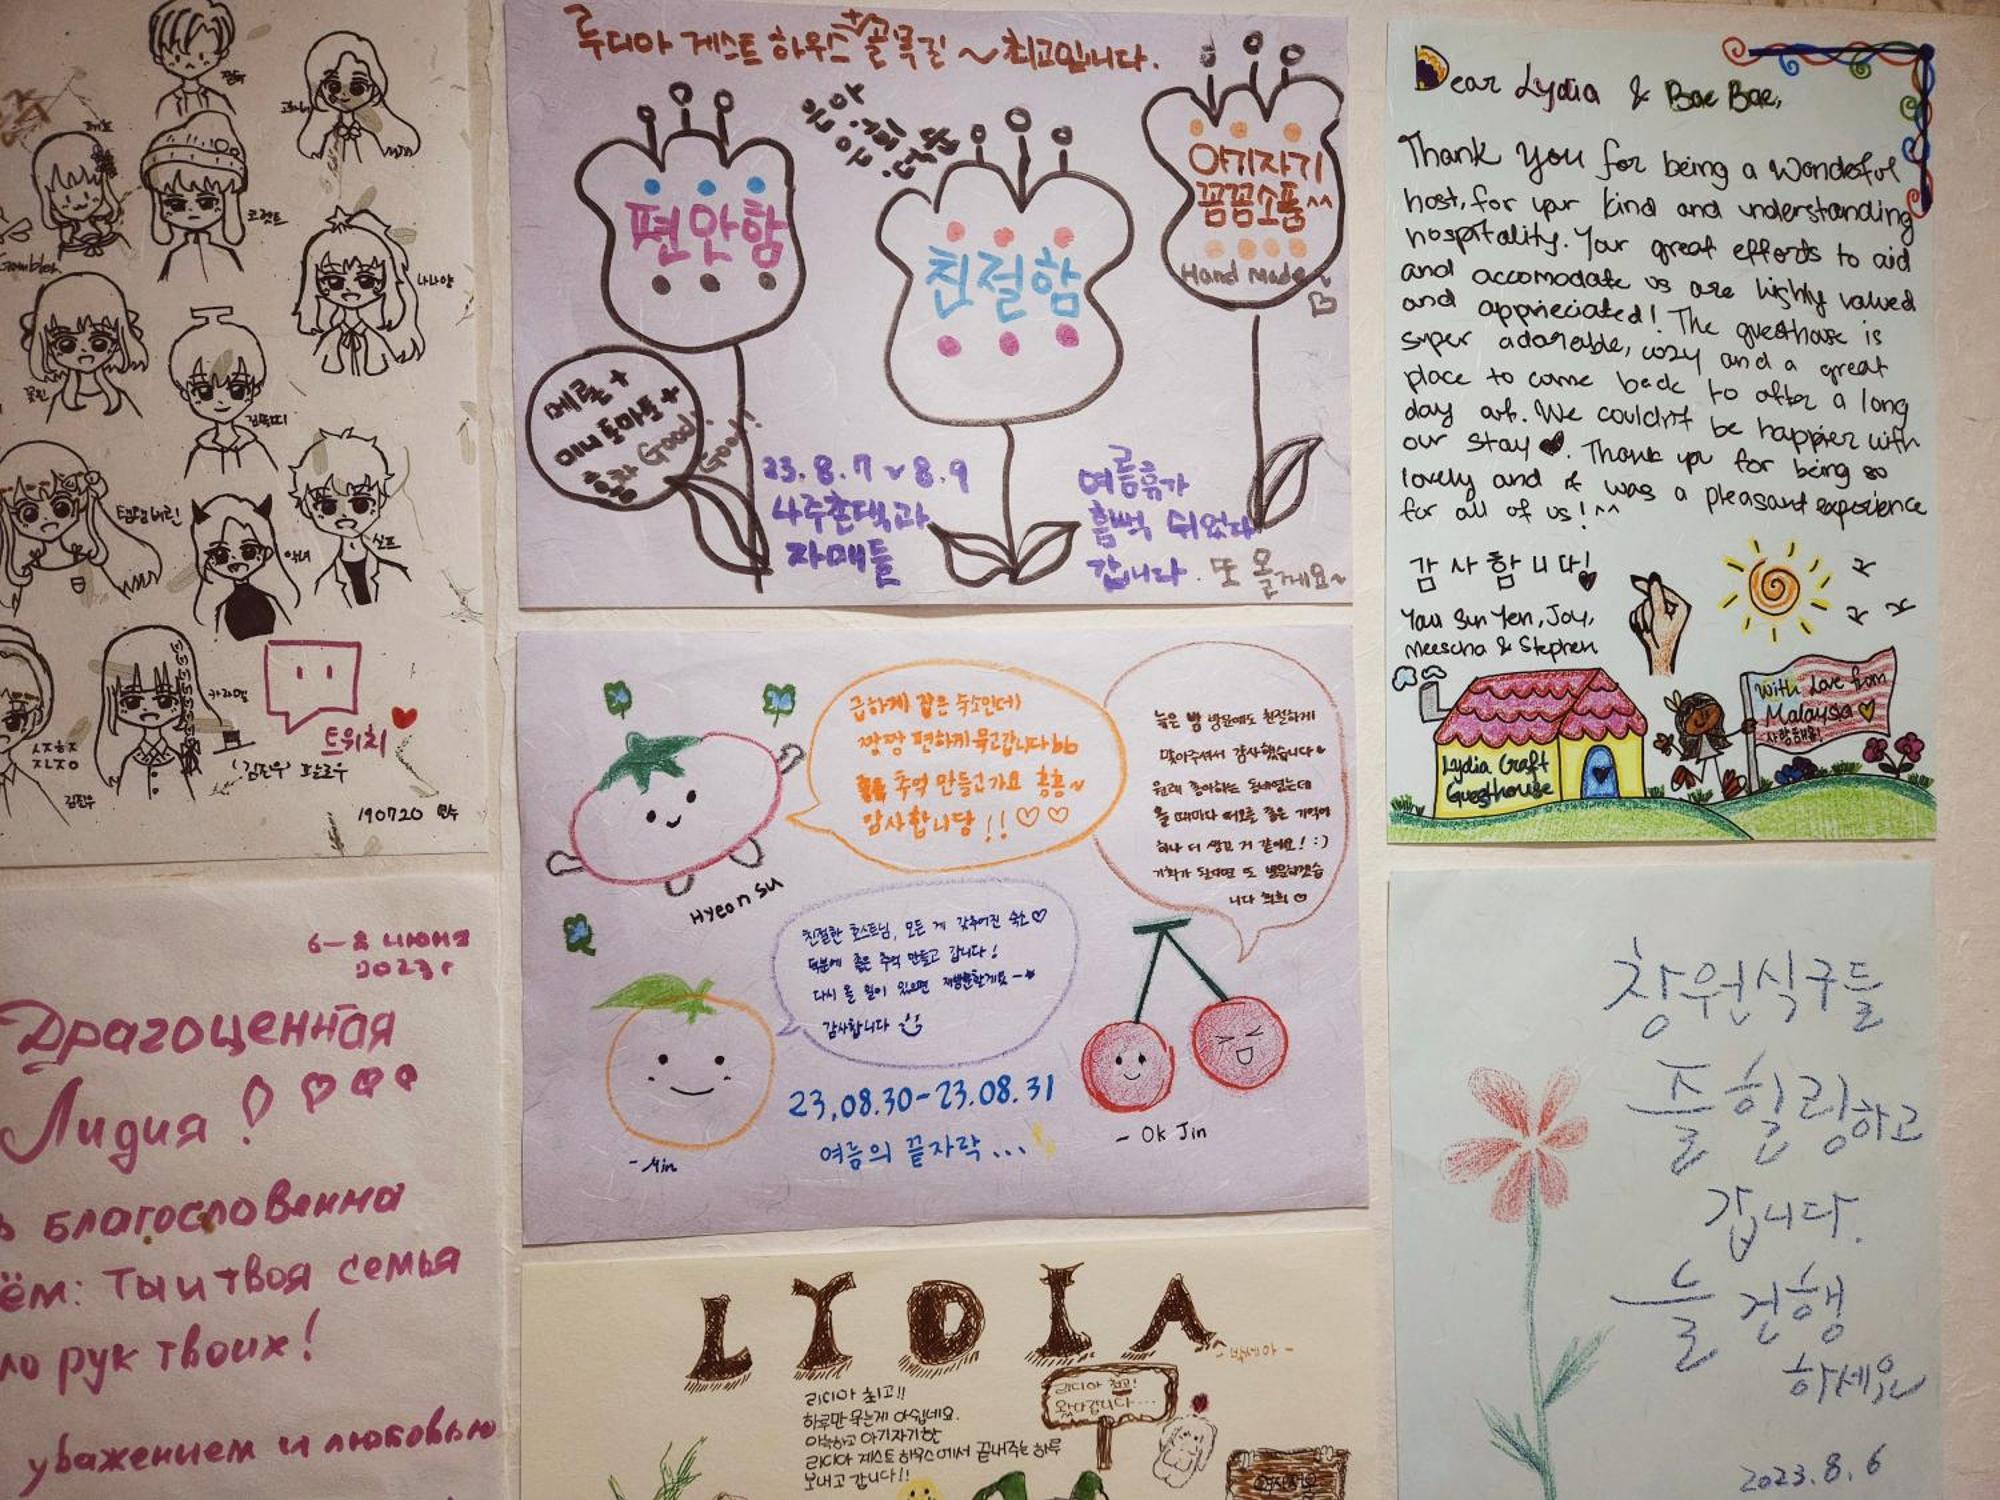 코렛트
나나양
꽃핀
김뚝띠
탬탬버린
악녀
카라멜
김진우
트위치
190720
6–8 июня
2023г
Драгоценная
Лидия!
благословенна
ём: Ты и твоя семья
рук твоих!
уважением и любовью
루디아 게스트 하우스 ~ 최고입니다.
편안함
친절함
아기자기
꼼꼼소품^^
Hand made~
메론 +
미니토마토 +
홍차 Good!
Good!
23. 8. 7 ~ 8. 9
나주촌댁과
자매들
여름휴가
흠뻑 쉬었다
갑니다. 또 올게요~
급하게 잡은 숙소인데
짱짱 편하게 묵고갑니다bb
추억 만들고가요 흥흥~
감사합니당!!♡♡
Hyeon Su
늦은 밤 방문에도 친절하게
맞아주셔서 감사했습니다
원래 좋아하는 동네였는데
올 때마다 떠오를 좋은 기억이
하나 더 생긴 거 같아요! :)
기회가 된다면 또 방문하겠습
니다 희희
친절한 호스트님, 모든 게 갖추어진 숙소♡
덕분에 좋은 추억 만들고 갑니다!
다시 올 일이 있으면 재방문할게요~
감사합니다
23.08.30-23.08.31
여름의 끝자락...
- Min
- Ok Jin
LYDIA
리디아 최고!!
하루만 묵는게 아쉽네요.
아늑하고 아기자기한
리디아 게스트하우스에서 끝내주는 하루
보내고 갑니다!!
리디아 최고!
왔다갑니다...
Dear Lydia & Bae Bae,
Thank you for being a wonderful
host, for your kind and understanding
hospitality. Your great efforts to aid
and accomodate us are highly valued
and appreciated! The guesthouse is
super adorable, cozy and a great
place to come back to after a long
day out. We couldn't be happier with
our stay ♥. Thank you for being so
lovely and it was a pleasant experience
for all of us! ^^
감사합니다!
Yau Sun Yen, Joy,
Meescha & Stephen
With Love from
Malaysia
사랑해용!
Lydia Craft
Guesthouse
창원식구들
쫄힐링하고
갑니다.
늘 건행
하세요
2023. 8. 6